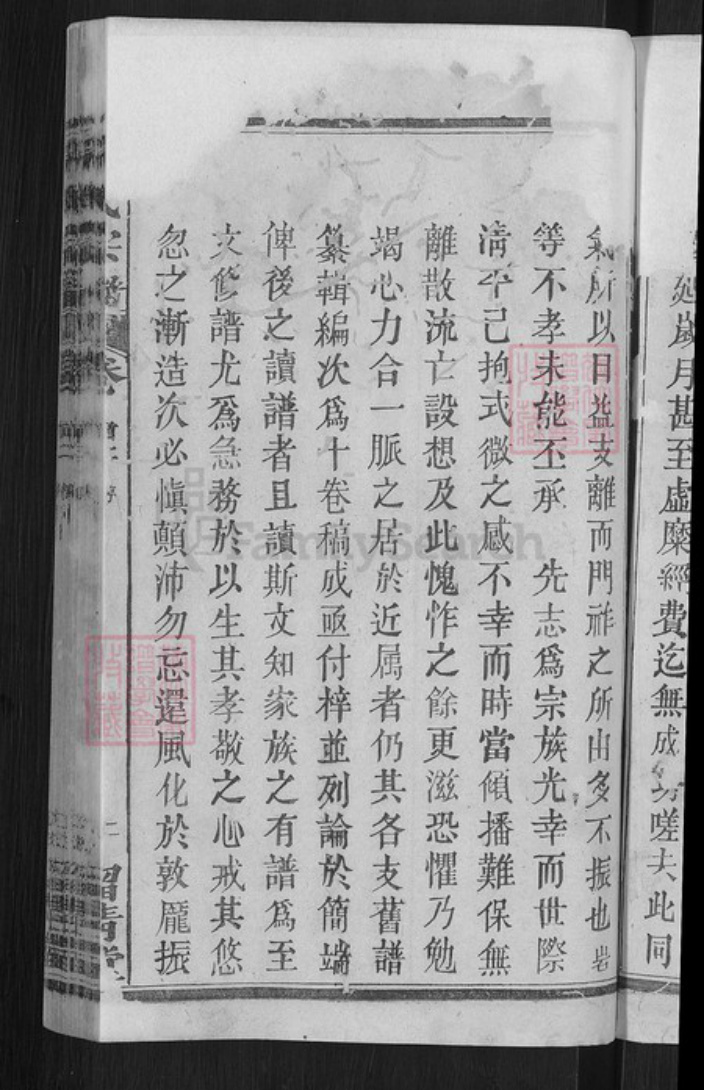 延歲月甚至虛糜經費迄無成功嗟夫此同
氣所以日益支離而門祚之所由多不振也岩
等不孝未能丕承　先志爲宗族光幸而世際
淸平己拘式微之感不幸而時當傾播難保無
離散流亡設想及此愧怍之餘更滋恐懼乃勉
竭心力合一脈之居於近属者仍其各支舊譜
纂輯編次爲十卷稿成亟付梓並列論於簡端
俾後之讀譜者且讀斯文知家族之有譜爲至
文修譜尤爲急務於以生其孝敬之心戒其悠
忽之漸造次必愼顛沛勿忘還風化於敦龐振
氏宗譜 卷首 序 二
FamilySearch